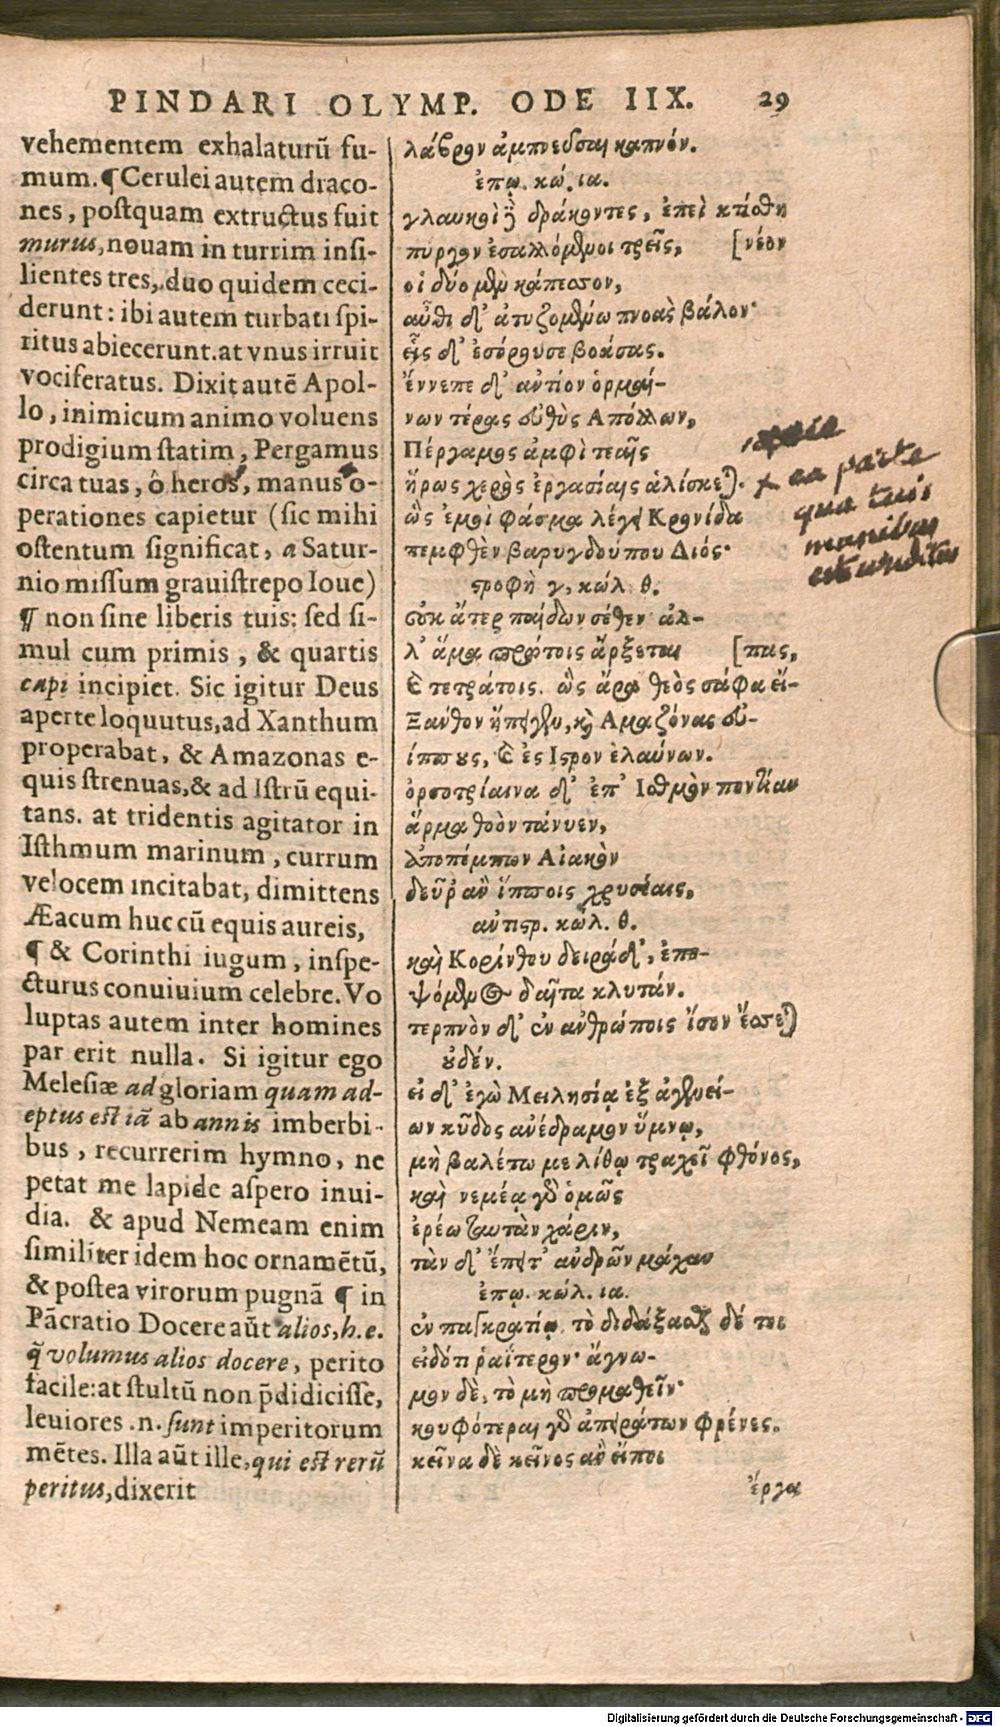 PINDARI OLYMP. ODE IIX. 29
vehementem exhalaturũ fu-
mum. ¶ Cerulei autem draco-
nes, postquam extructus fuit
murus, nouam in turrim insi-
lientes tres, duo quidem ceci-
derunt: ibi autem turbati spi-
ritus abiecerunt. at vnus irruit
vociferatus. Dixit autẽ Apol-
lo, inimicum animo voluens
prodigium statim, Pergamus
circa tuas, ô heros, manus o-
perationes capietur (sic mihi
ostentum significat, a Satur-
nio missum grauistrepo Ioue)
¶ non sine liberis tuis: sed si-
mul cum primis, & quartis
capi incipiet. Sic igitur Deus
aperte loquutus, ad Xanthum
properabat, & Amazonas e-
quis strenuas, & ad Istrũ equi-
tans. at tridentis agitator in
Isthmum marinum, currum
velocem incitabat, dimittens
Æacum huc cũ equis aureis,
¶ & Corinthi iugum, inspe-
cturus conuiuium celebre. Vo
luptas autem inter homines
par erit nulla. Si igitur ego
Melesiæ ad gloriam quam ad-
eptus est iã ab annis imberbi-
bus, recurrerim hymno, ne
petat me lapide aspero inui-
dia. & apud Nemeam enim
similiter idem hoc ornamẽtũ,
& postea virorum pugnã ¶ in
Pãcratio Docere aũt alios, h.e.
q̃ volumus alios docere, perito
facile: at stultũ non p̃didicisse,
leuiores .n. sunt imperitorum
mẽtes. Illa aũt ille, qui est rerũ
peritus, dixerit
λάβρον ἀμπνεῦσαι καπνόν.
ἐπῳ. κώ. ια.
γλαυκοὶ δὲ δράκοντες, ἐπεὶ κτίσθη
πύργον ἐσαλλόμενοι τρεῖς, [νέον
οἱ δύο μὲν κάπετον,
αὖθι δ' ἀτυζομένω πνοὰς βάλον·
εἷς δ' ἐσόρουσε βοάσας.
ἔννεπε δ' αὐτίον ὁρμαί-
νων τέρας εὐθὺς Απόλλων,
Πέργαμος ἀμφὶ τεαῖς
ἥρως χερὸς ἐργασίαις ἁλίσκεται.
ὣς ἐμοὶ φάσμα λέγει Κρονίδα
πεμφθὲν βαρυγδούπου Διός·
στροφὴ γ, κώλ. θ.
οὐκ ἄτερ παίδων σέθεν ἀλ-
λ' ἅμα πρώτοις ἄρξεται [πας,
καὶ τετράτοις. ὣς ἄρα θεὸς σάφα εἴ-
Ξάνθον ἤπειγεν, καὶ Αμαζόνας εὐ-
ίππους, καὶ ἐς Ιστρον ἐλαύνων.
ὀρσοτρίαινα δ' ἐπ' Ισθμὸν ποντίαν
ἅρμα θοὸν τάνυεν,
ἀποπέμπων Αἰακὸν
δεῦρ' ἂν ἵπποις χρυσέαις,
αὐτιστρ. κώλ. θ.
καὶ Κορίνθου δειράδ', ἐπο-
ψόμενος δαῖτα κλυτάν.
τερπνὸν δ' ἐν ἀνθρώποις ἴσον ἔσσεται
οὐδέν.
εἰ δ' ἐγὼ Μειλησίᾳ ἐξ ἀγενεί-
ων κῦδος ἀνέδραμον ὕμνῳ,
μὴ βαλέτω με λίθῳ τραχεῖ φθόνος,
καὶ νεμέᾳ γὰρ ὁμῶς
ἐρέω ταύταν χάριν,
τὰν δ' ἔπειτ' ἀνδρῶν μάχαν
ἐπῳ. κώλ. ια.
ἐν παγκρατίῳ. τὸ διδάξασθαι δέ τοι
εἰδότι ῥαΐτερον· ἄγνω-
μον δὲ, τὸ μὴ προμαθεῖν·
κουφότεραι γὰρ ἀπειράτων φρένες.
κεῖνα δὲ κεῖνος ἂν εἴποι
ἔργα
+ ea parte
qua tuis
manibus